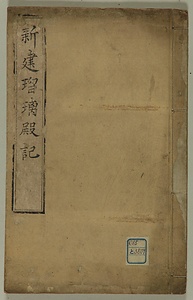 新建瑠璃殿記